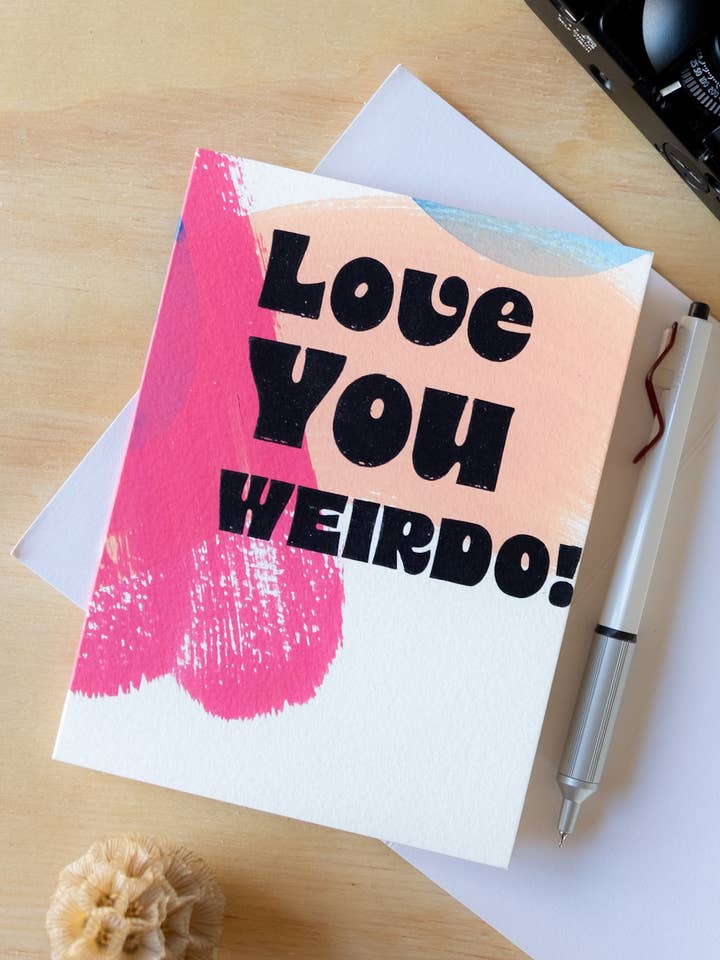 Love
You
WEIRDO!